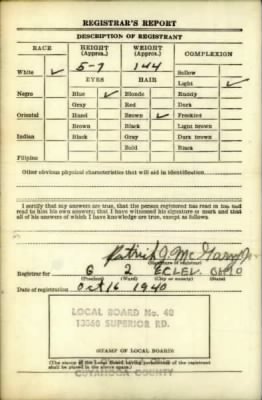 REGISTRAR'S REPORT
DESCRIPTION OF REGISTRANT
RACE HEIGHT (Approx.) WEIGHT (Approx.) COMPLEXION
5-7 144 Sallow
White ✓ EYES HAIR Light ✓
Negro Blue ✓ Blonde Ruddy
Gray Red Dark
Oriental Hazel Brown ✓ Freckled
Brown Black Light brown
Indian Black Gray Dark brown
Bald Black
Filipino
Other obvious physical characteristics that will aid in identification
I certify that my answers are true; that the person registered has read or has had
read to him his own answers; that I have witnessed his signature or mark and that
all of his answers of which I have knowledge are true, except as follows:
Patrick J. McGarry Jr.
(Signature of registrar)
Registrar for 6 2 E CLEV. OHIO
(Precinct) (Ward) (City or county) (State)
Date of registration Oct 16 1940
LOCAL BOARD No. 40
13560 SUPERIOR RD.
(STAMP OF LOCAL BOARD)
(The stamp of the Local Board having jurisdiction of the registrant
shall be placed in the above space.)
CUYAHOGA COUNTY